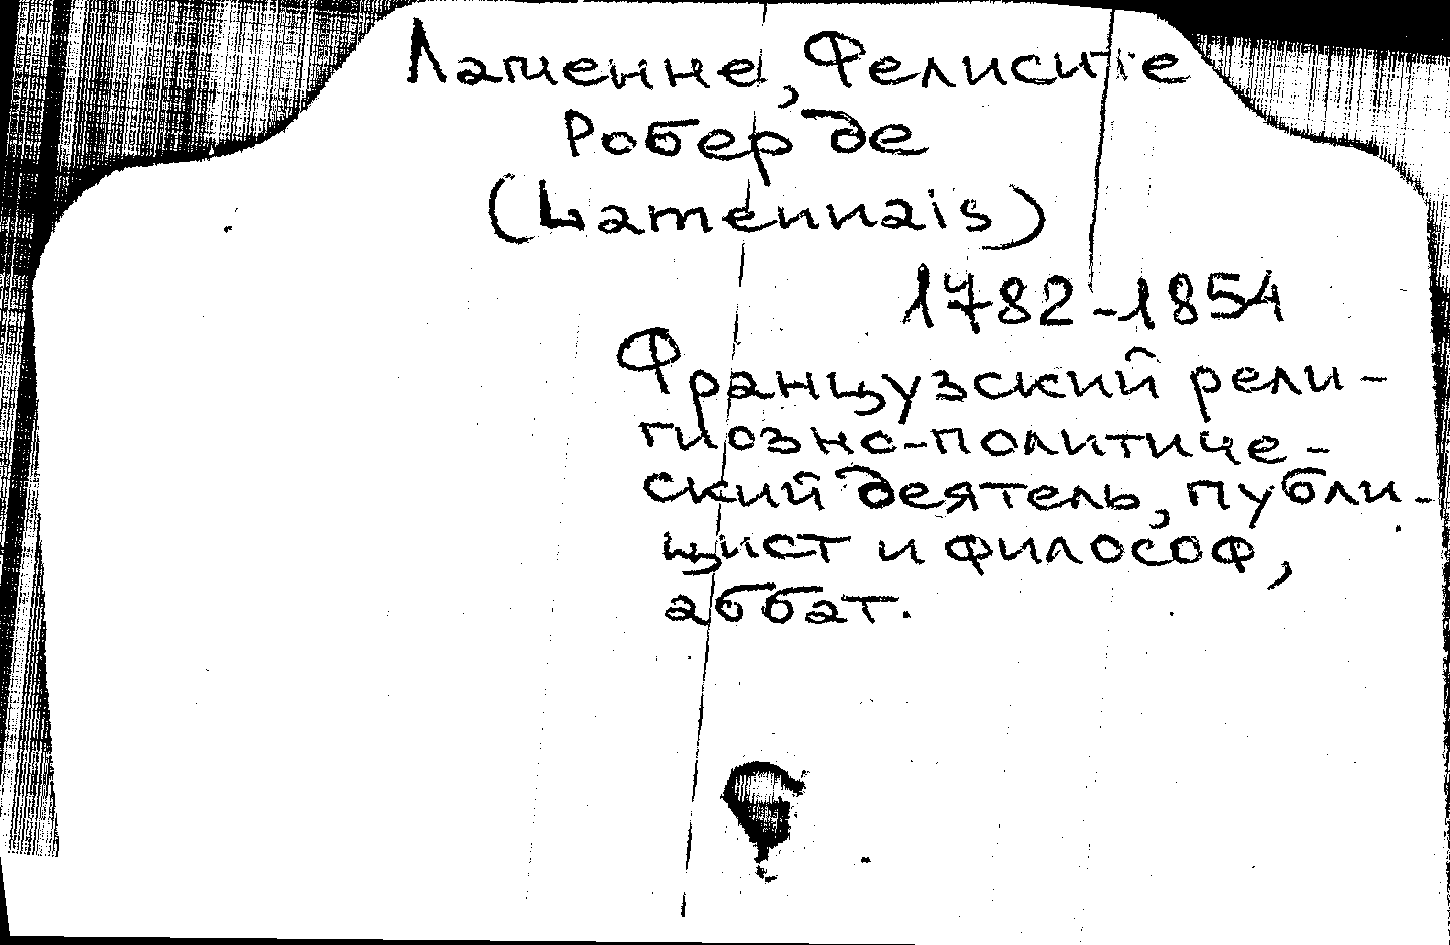 Ламенне, Фелисите
Робер де
(Lamennais)
1782-1854
Французский рели-
гиозно-политиче-
ский деятель, публи-
цист и философ,
аббат.